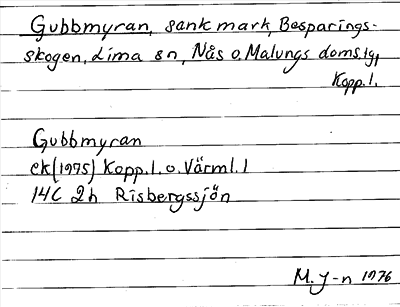 Gubbmyran, sank mark, Besparings-
skogen, Lima sn, Nås o. Malungs doms.lg,
Kopp.l.
Gubbmyran
ek (1975) Kopp.l. o. Värml.l
14C 2h Risbergssjön
M. J-n 1976